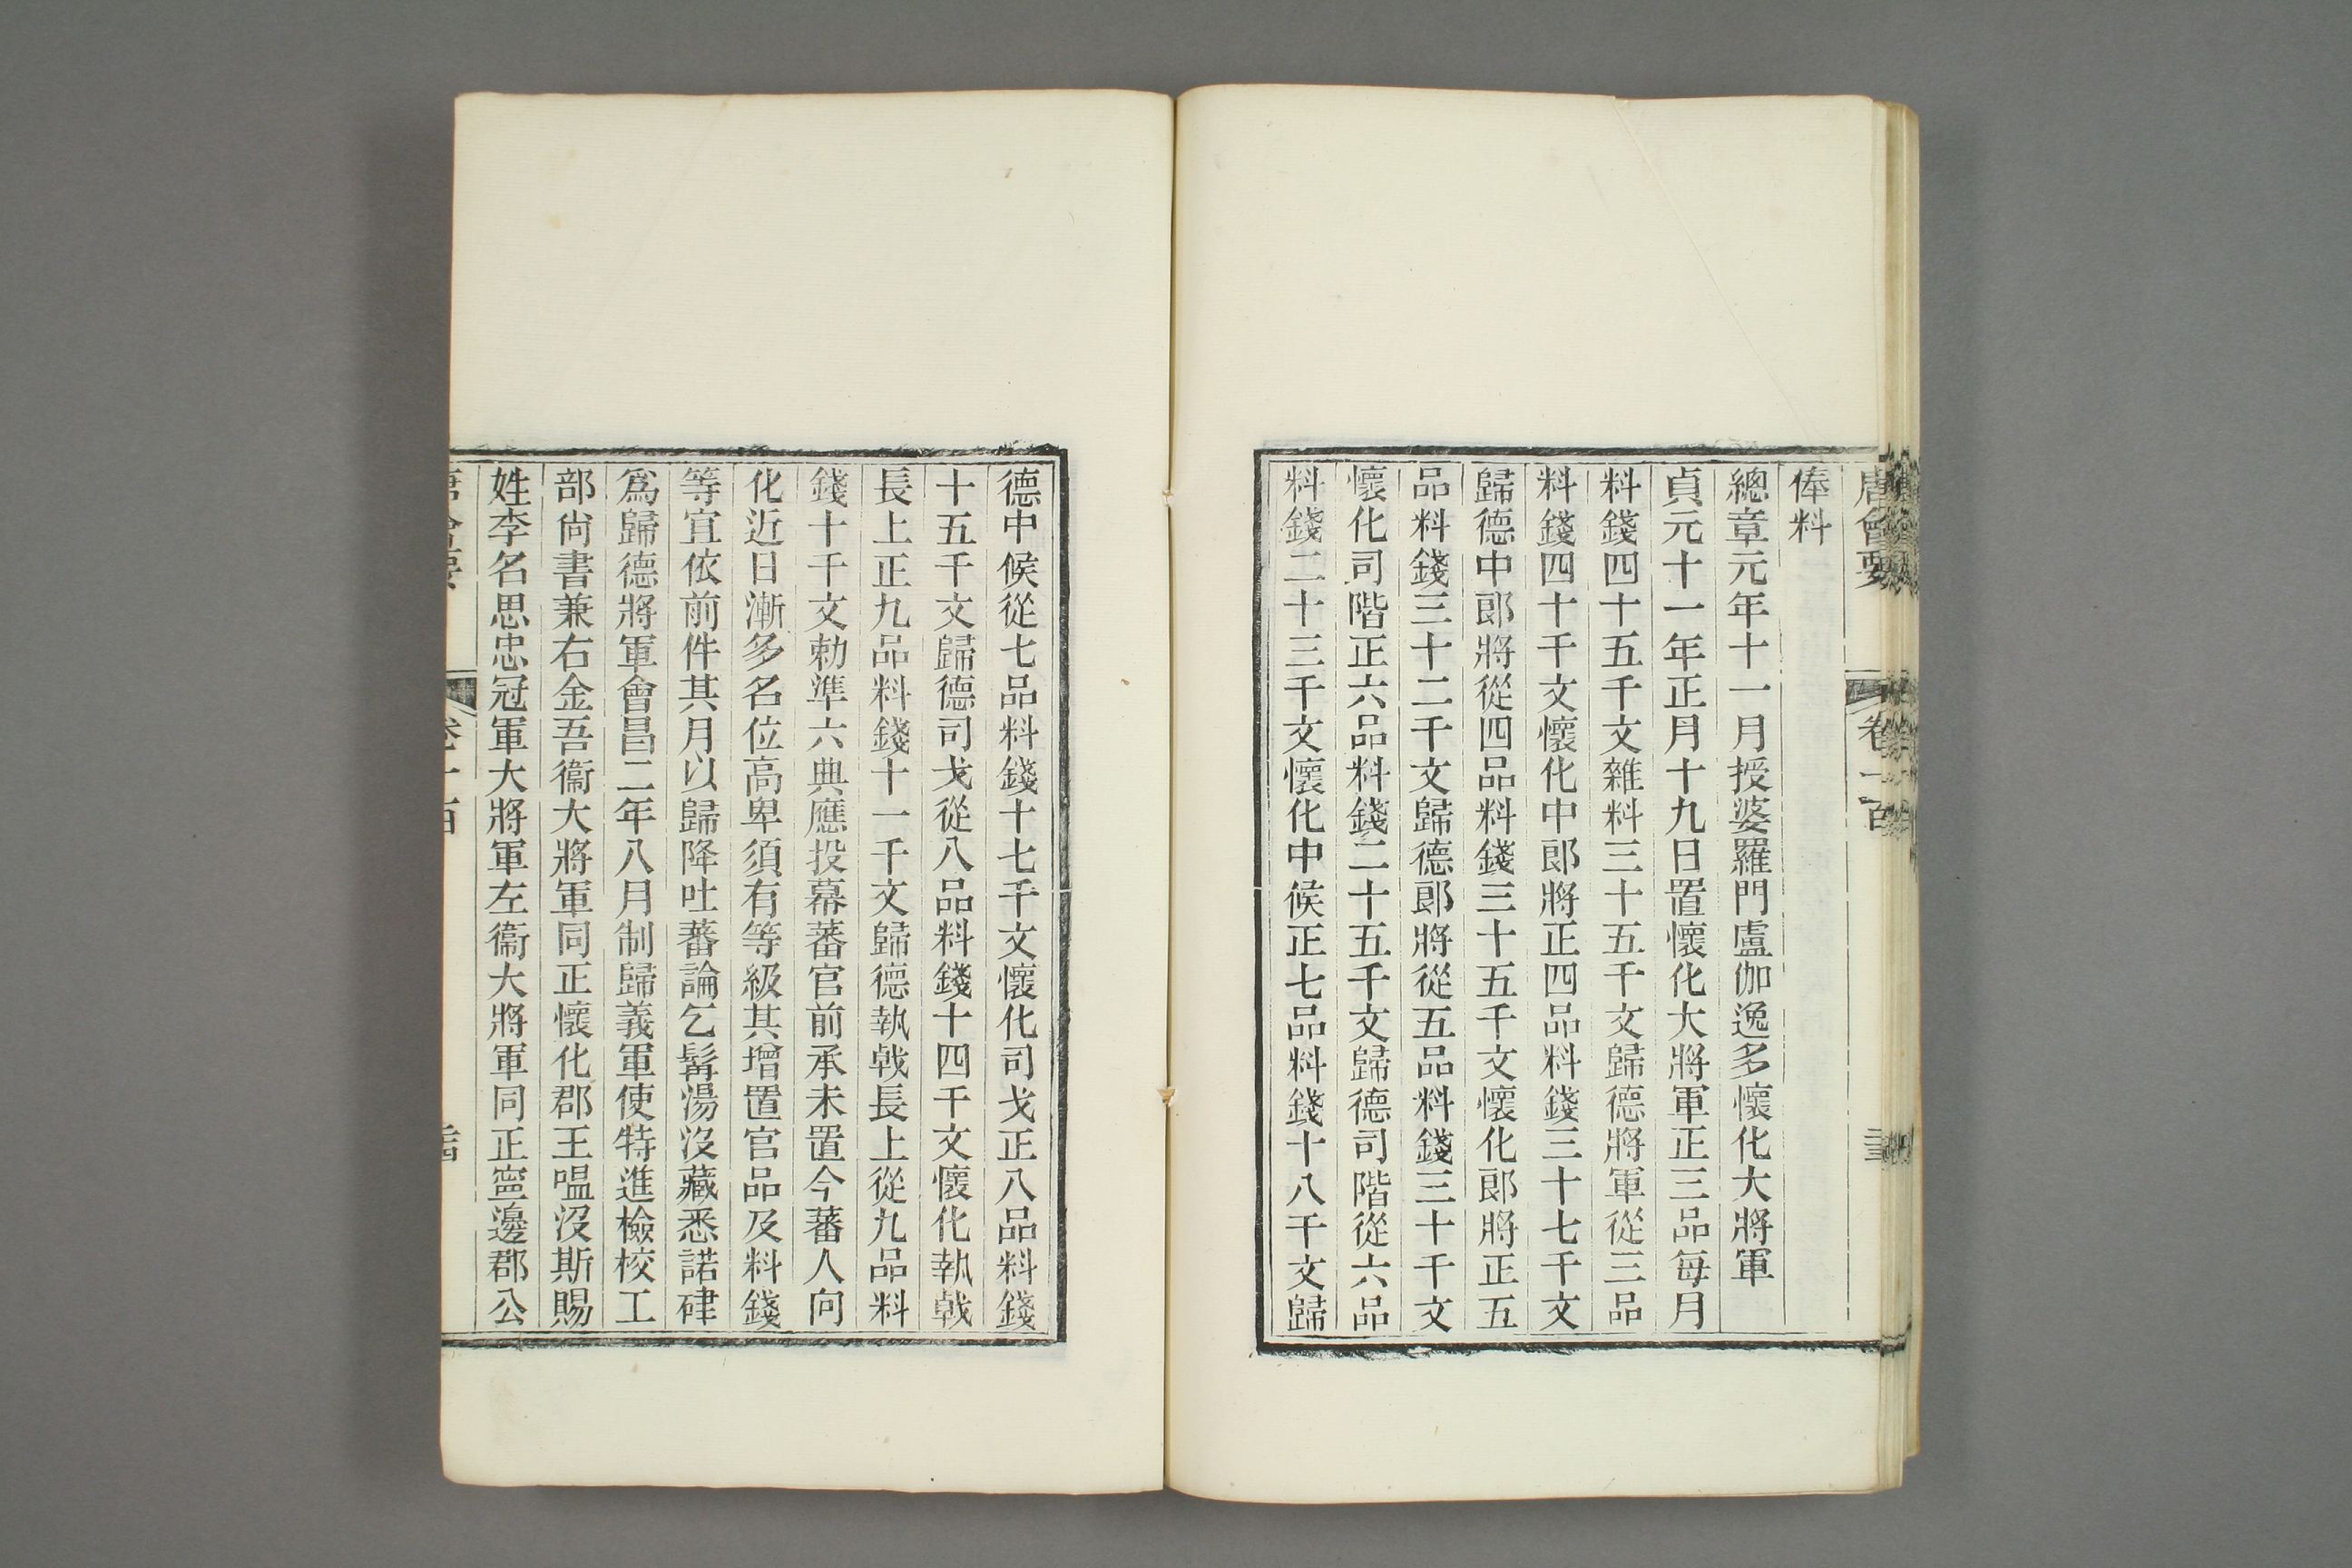 唐會要 卷一百
俸料
總章元年十一月授婆羅門盧伽逸多懷化大將軍
貞元十一年正月十九日置懷化大將軍正三品每月
料錢四十五千文雜料三十五千文歸德將軍從三品
料錢四十千文懷化中郎將正四品料錢三十七千文
歸德中郎將從四品料錢三十五千文懷化郎將正五
品料錢三十二千文歸德郎將從五品料錢三十千文
懷化司階正六品料錢二十五千文歸德司階從六品
料錢二十三千文懷化中候正七品料錢十八千文歸
德中候從七品料錢十七千文懷化司戈正八品料錢
十五千文歸德司戈從八品料錢十四千文懷化執戟
長上正九品料錢十一千文歸德執戟長上從九品料
錢十千文勅準六典應投幕蕃官前承未置今蕃人向
化近日漸多名位高卑須有等級其增置官品及料錢
等宜依前件其月以歸降吐蕃論乞髯湯沒藏悉諾硉
爲歸德將軍會昌二年八月制歸義軍使特進檢校工
部尚書兼右金吾衞大將軍同正懷化郡王嗢沒斯賜
姓李名思忠冠軍大將軍左衞大將軍同正寧邊郡公
唐會要 卷一百